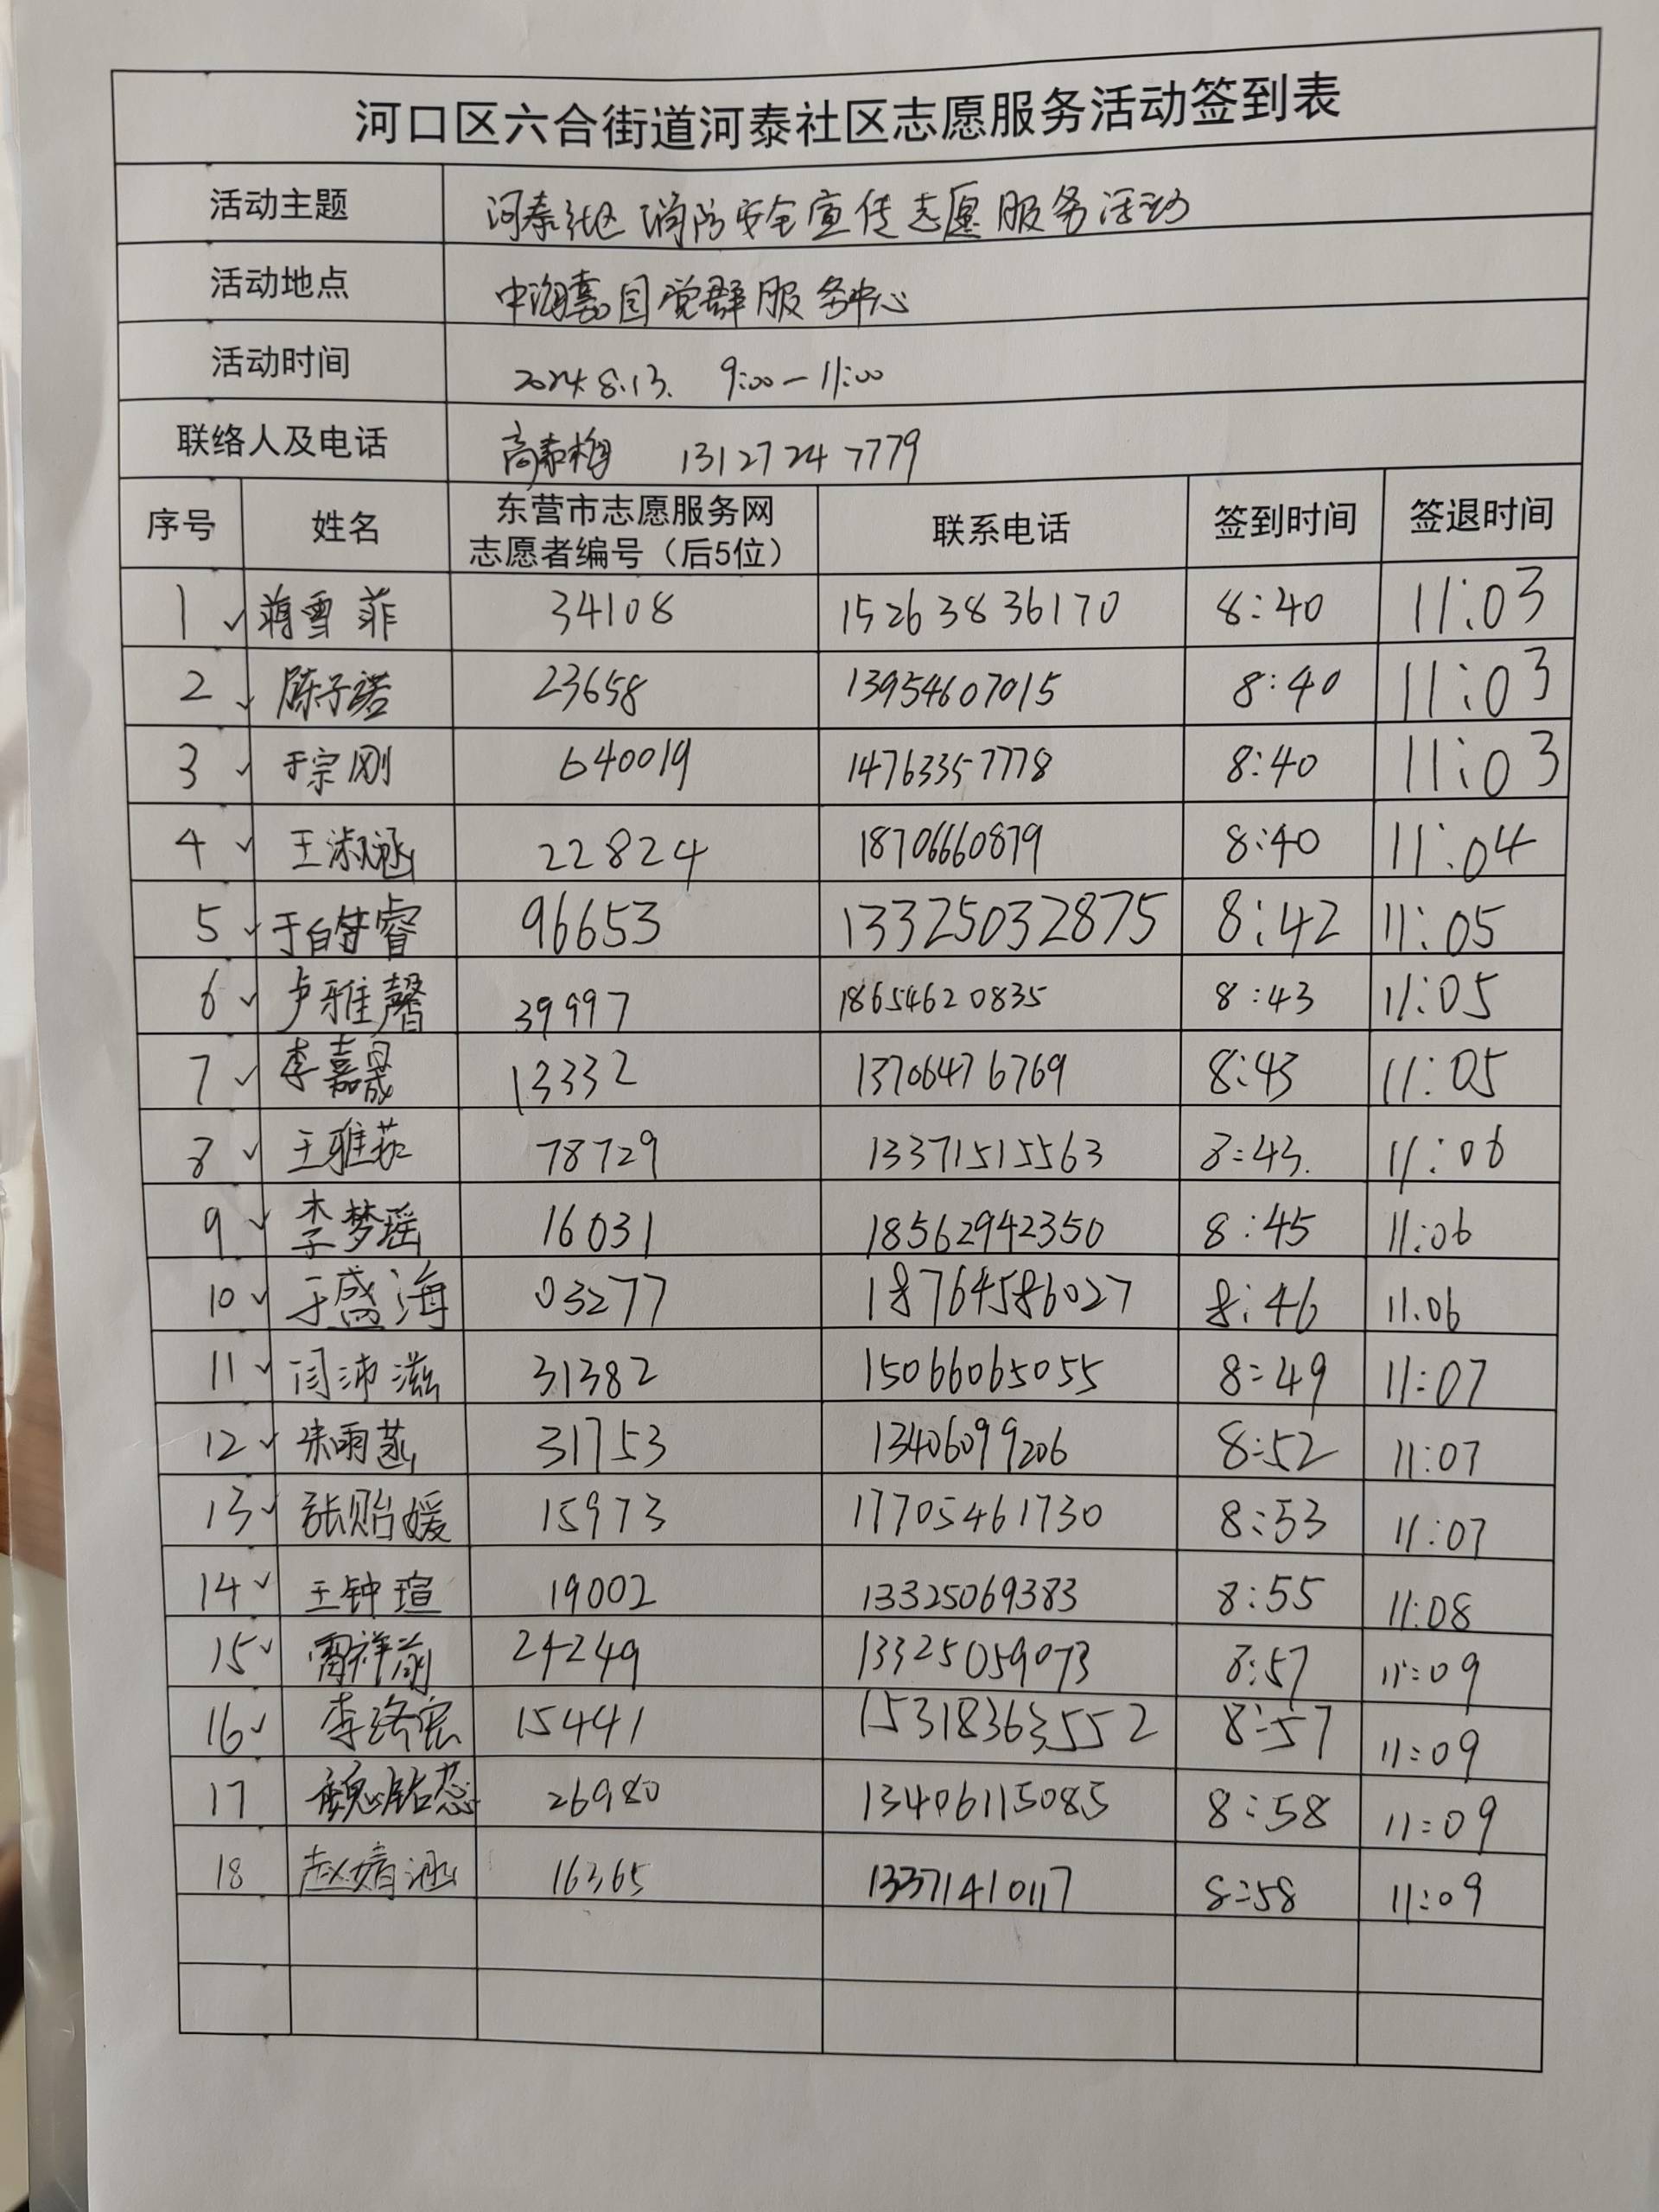 河口区六合街道河泰社区志愿服务活动签到表
活动主题 河泰社区消防安全宣传志愿服务活动
活动地点 中海嘉园党群服务中心
活动时间 2024.8.13. 9:00—11:00
联络人及电话 高秀梅 13127247779
序号 姓名 东营市志愿服务网志愿者编号（后5位） 联系电话 签到时间 签退时间
1 ✓ 蒋雪菲 34108 15263836170 8:40 11:03
2 ✓ 陈子诺 23658 13954607015 8:40 11:03
3 ✓ 于宗刚 640019 14763357778 8:40 11:03
4 ✓ 王淑涵 22824 18706660879 8:40 11:04
5 ✓ 于白甘睿 96653 13325032875 8:42 11:05
6 ✓ 卢雅馨 39997 18654620835 8:43 11:05
7 ✓ 李嘉晟 13332 13706476769 8:43 11:05
8 ✓ 王雅茹 78729 13371515563 8:43. 11:06
9 ✓ 李梦瑶 16031 18562942350 8:45 11:06
10 ✓ 于盛海 03277 18764586027 8:46 11:06
11 ✓ 闫沛滋 31382 15066065055 8:49 11:07
12 ✓ 朱雨菡 31753 13406099206 8:52 11:07
13 ✓ 张贻媛 15973 17705461730 8:53 11:07
14 ✓ 王钟瑄 19002 13325069383 8:55 11:08
15 ✓ 雷祥 24249 13325059073 8:57 11:09
16 ✓ 李洛宏 15441 15318363552 8:57 11:09
17 魏铭蕊 26980 13406115085 8:58 11:09
18 赵婧涵 16365 13371410117 8:58 11:09